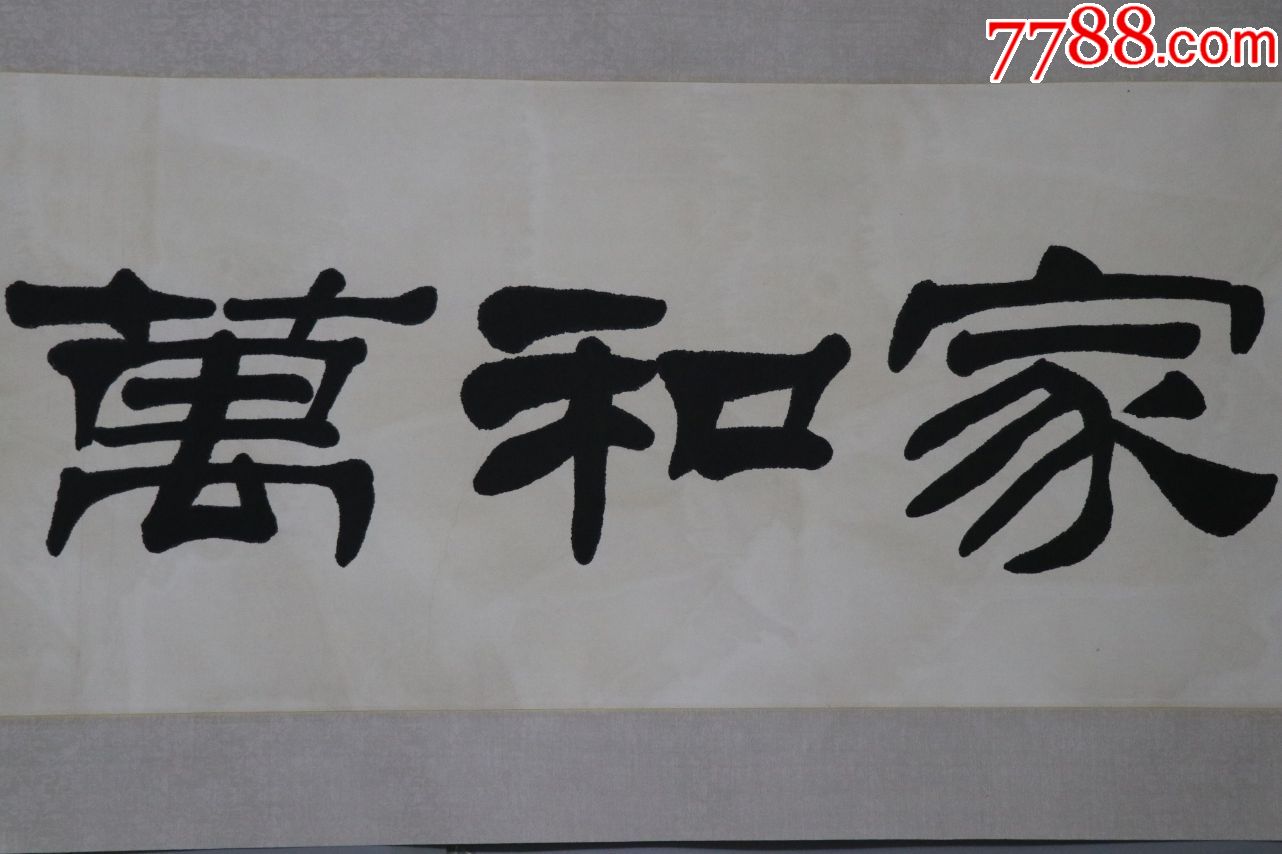 7788.com
家和萬